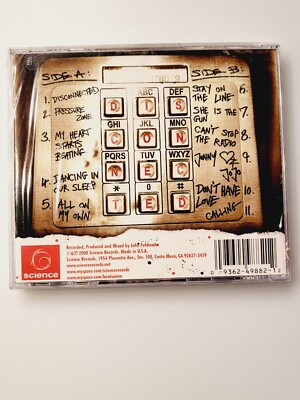 SIDE A:
1. DISCONNECTED
2. PRESSURE
ZONE
3. MY HEART
STARTS
BEATING
4. DANCING IN
OUR SLEEP
5. ALL ON
MY OWN
ABC
DEF
D
I
S
GHI
JKL
MNO
C
O
N
PQRS
TUV
WXYZ
N
E
C
*
0
#
T
E
D
SIDE B:
STAY ON
THE LINE 6.
SHE IS THE
GUN 7.
CAN'T STOP
THE RADIO 8.
JOHNNY 9.
JOJO
DON'T HAVE 10.
LOVE
CALLING 11.
science
Recorded, Produced and Mixed by John Feldmann
2008 Science Records. Made in U.S.A.
Science Records, 1954 Placentia Ave., Ste. 108, Costa Mesa, CA 92627-3459
www.sciencerecords.net
0 93624 98821